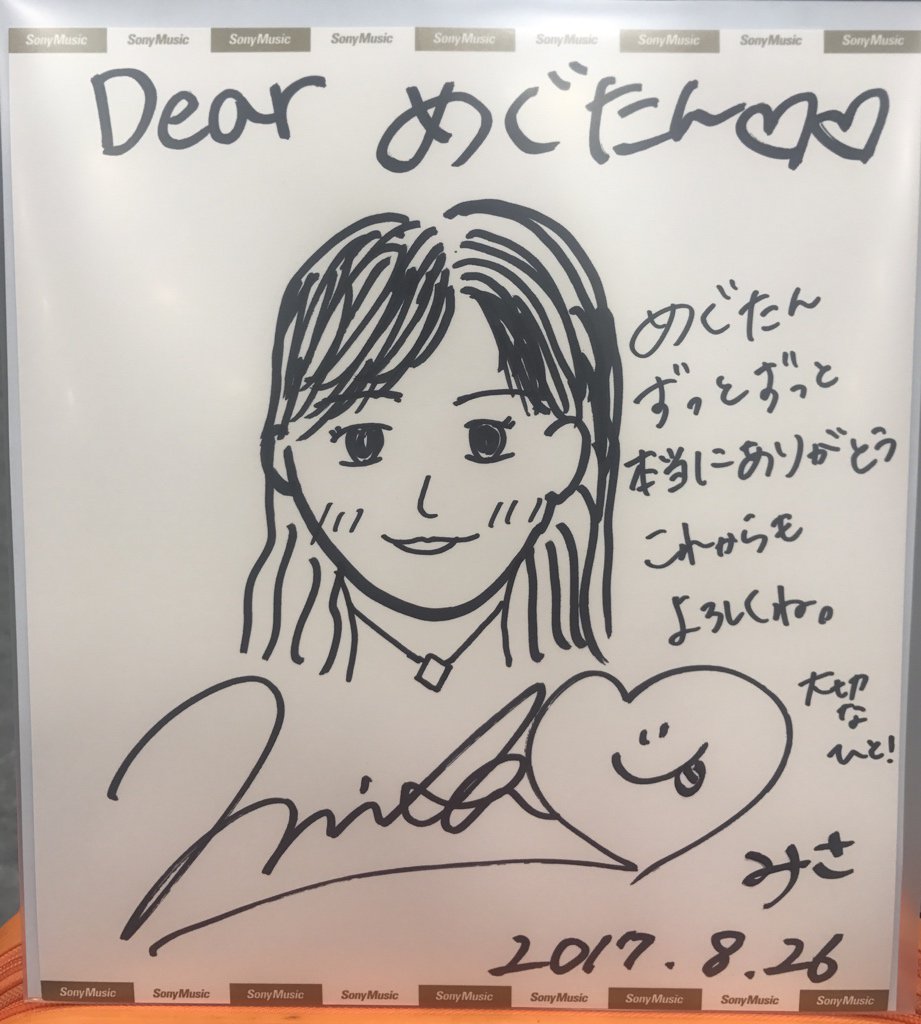 SonyMusic SonyMusic SonyMusic SonyMusic SonyMusic SonyMusic SonyMusic SonyMusic SonyMusic
Dear めぐたん♡♡
めぐたん
ずっとずっと
本当にありがとう
これからも
よろしくね。
大切
な
ひと!
misa
みさ
2017.8.26
SonyMusic SonyMusic SonyMusic SonyMusic SonyMusic SonyMusic SonyMusic SonyMusic SonyMusic